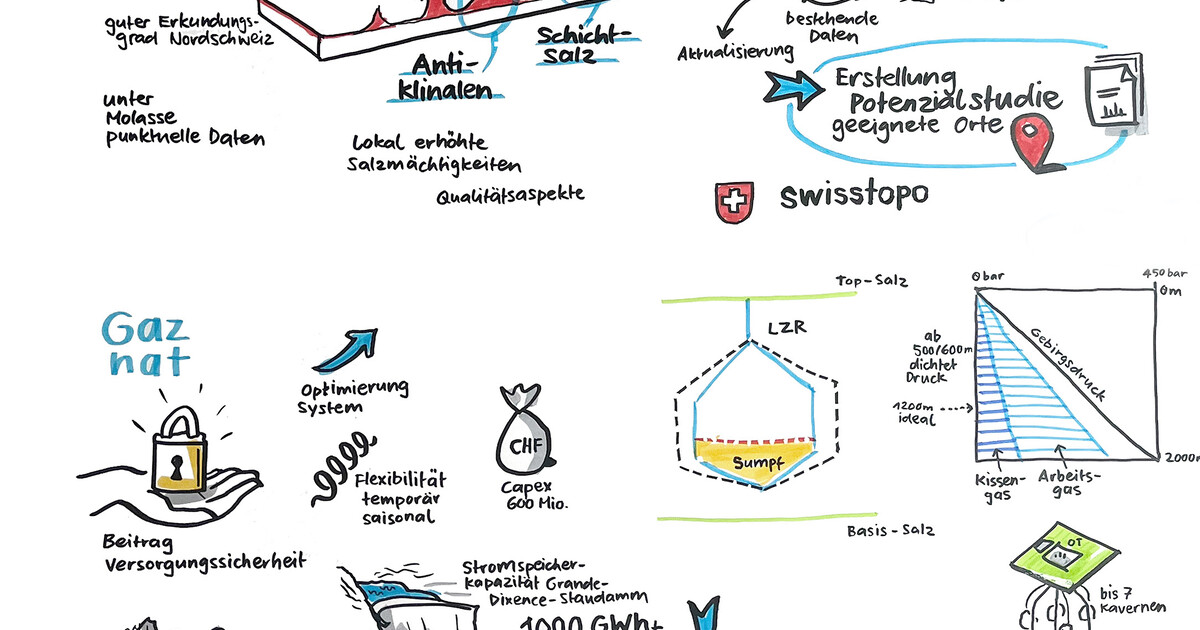 guter Erkundungs-
grad Nordschweiz
unter
Molasse
punktuelle Daten
Anti-
klinalen
Schicht-
Salz
Lokal erhöhte
Salzmächtigkeiten
Qualitätsaspekte
bestehende
Daten
Aktualisierung
Erstellung
Potenzialstudie
geeignete Orte
swisstopo
Gaz
nat
Optimierung
System
Flexibilität
temporär
saisonal
CHF
Capex
600 Mio.
Beitrag
Versorgungssicherheit
Stromspeicher-
kapazität Grande-
Dixence-Staudamm
Top-Salz
LZR
Sumpf
Basis-Salz
0 bar
450 bar
0m
ab
500/600m
dichtet
Druck
1200m
ideal
Gebirgsdruck
2000m
Kissen-
gas
Arbeits-
gas
OT
bis 7
Kavernen